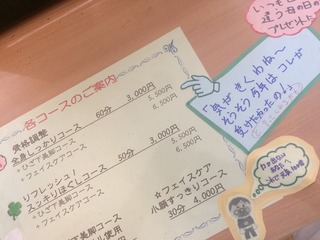 各コースのご案内
骨格調整
全身すっきりコース 60分 3,000円
+ひざ下美脚コース 5,500円
+フェイスケアコース 6,500円
リフレッシュ!
スッキリほぐしコース 50分 3,000円
+ひざ下美脚コース 5,500円
+フェイスケアコース 6,500円
下美脚コース
ール使用
☆フェイスケア
小顔すっきりコース
30分 4,000円
いつもと
違う母の日の
プレゼントに
「気がきくわね〜
そうそう 5月は コレが
受けたかったのよ」